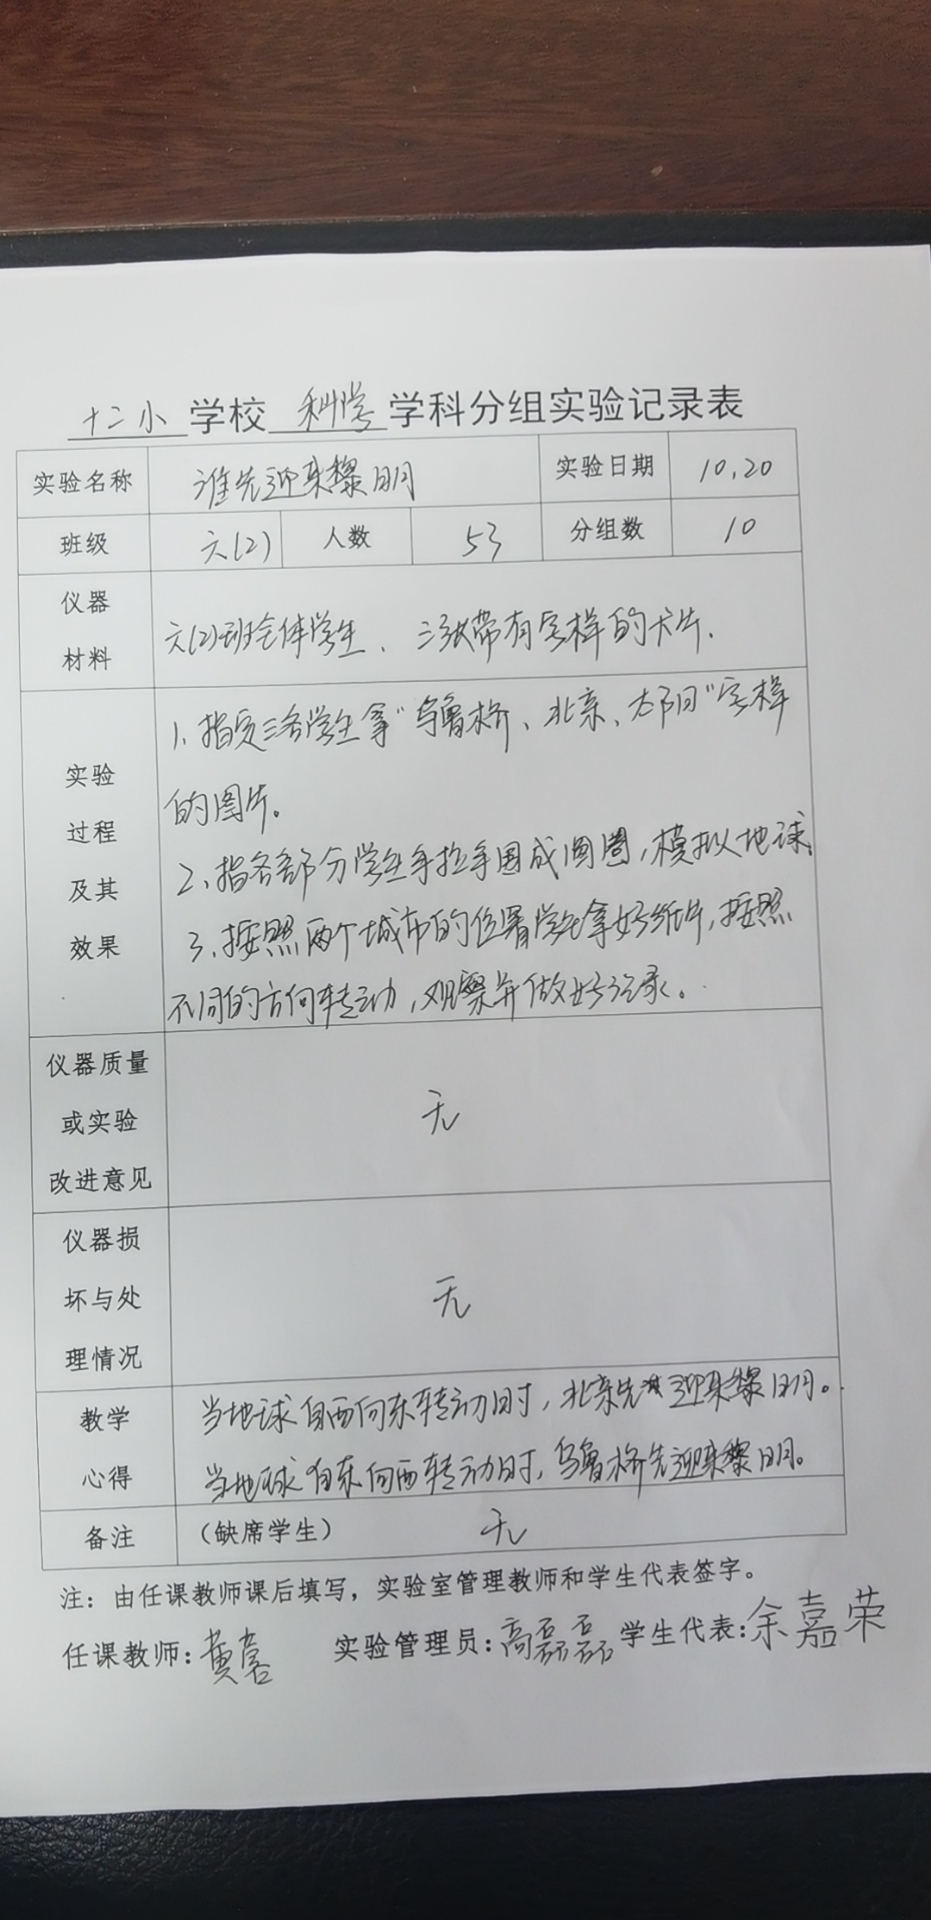 十二小 学校 科学 学科分组实验记录表
实验名称 谁先迎来黎明 实验日期 10.20
班级 六(2) 人数 53 分组数 10
仪器
材料
六(2)班全体学生、三张带有字样的卡片.
实验
过程
及其
效果
1、指定三名学生拿“乌鲁木齐、北京、太阳”字样
的图片。
2、指名部分学生手拉手围成圆圈,模拟地球。
3、按照两个城市的位置学生拿好纸片,按照
不同的方向转动,观察并做好记录。
仪器质量
或实验
改进意见
无
仪器损
坏与处
理情况
无
教学
心得
当地球自西向东转动时,北京先迎来黎明。
当地球自东向西转动时,乌鲁木齐先迎来黎明。
备注 (缺席学生) 无
注：由任课教师课后填写，实验室管理教师和学生代表签字。
任课教师: 黄 实验管理员: 高磊磊 学生代表: 余嘉荣